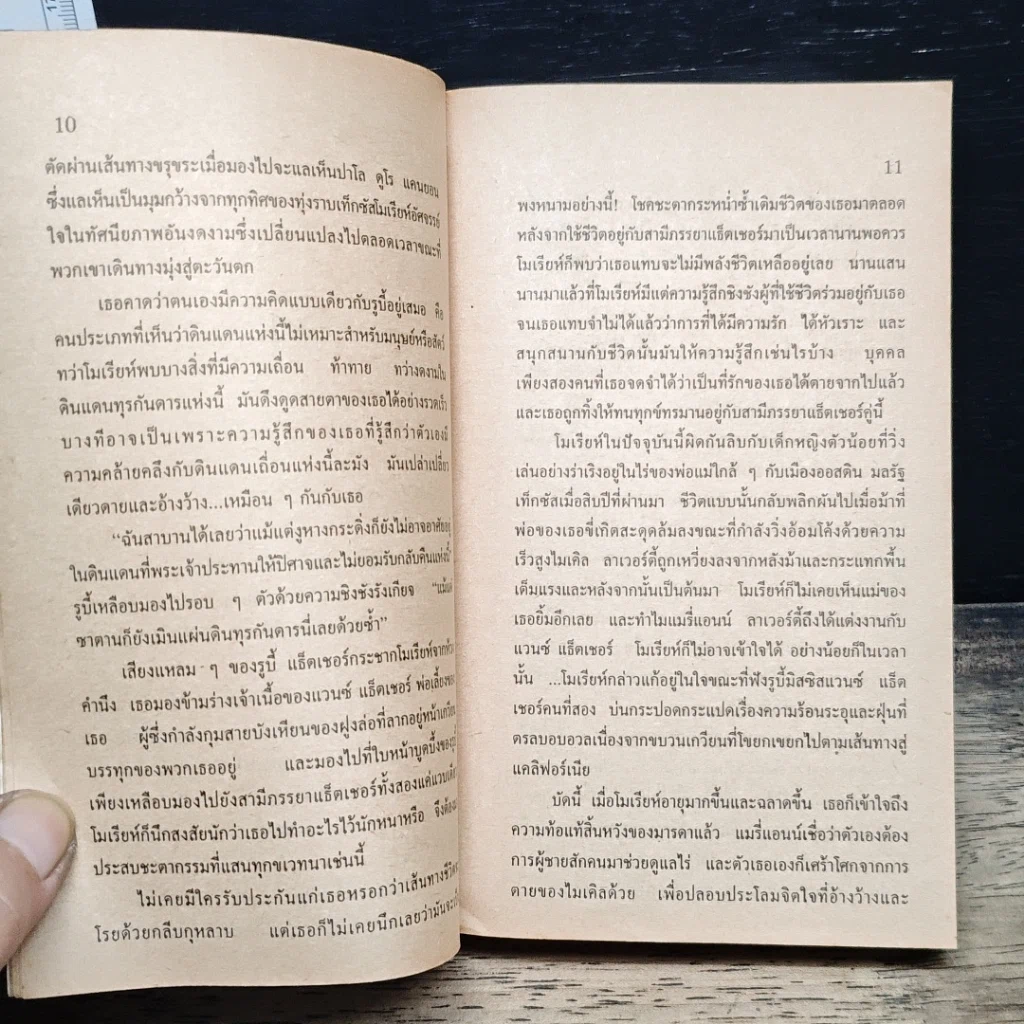 10
ตัดผ่านเส้นทางขรุขระเมื่อมองไปจะแลเห็นปาโล ดูโร แคนยอน
ซึ่งแลเห็นเป็นมุมกว้างจากทุกทิศของทุ่งราบเท็กซัสโมเรียห์อัศจรรย์
ใจในทัศนียภาพอันงดงามซึ่งเปลี่ยนแปลงไปตลอดเวลาขณะที่
พวกเขาเดินทางมุ่งสู่ตะวันตก
เธอคาดว่าตนเองมีความคิดแบบเดียวกับรูบี้อยู่เสมอ คือ
คนประเภทที่เห็นว่าดินแดนแห่งนี้ไม่เหมาะสำหรับมนุษย์หรือสัตว์
ทว่าโมเรียห์พบบางสิ่งที่มีความเถื่อน ท้าทาย ทว่างดงามใน
ดินแดนทุรกันดารแห่งนี้ มันดึงดูดสายตาของเธอได้อย่างรวดเร็ว
บางทีอาจเป็นเพราะความรู้สึกของเธอที่รู้สึกว่าตัวเองมี
ความคล้ายคลึงกับดินแดนเถื่อนแห่งนี้ละมัง มันเปล่าเปลี่ยว
เดียวดายและอ้างว้าง...เหมือน ๆ กันกับเธอ
“ฉันสาบานได้เลยว่าแม้แต่งูหางกระดิ่งก็ยังไม่อาจอาศัยอยู่
ในดินแดนที่พระเจ้าประทานให้ปีศาจและไม่ยอมรับกลับคืนแห่งนี้”
รูบี้เหลือบมองไปรอบ ๆ ตัวด้วยความชิงชังรังเกียจ “แม้แต่
ซาตานก็ยังเมินแผ่นดินทุรกันดารนี่เลยด้วยซ้ำ”
เสียงแหลม ๆ ของรูบี้ แธ็ตเชอร์กระชากโมเรียห์จาก
คำนึง เธอมองข้ามร่างเจ้าเนื้อของแวนซ์ แธ็ตเชอร์ พ่อเลี้ยงของ
เธอ ผู้ซึ่งกำลังกุมสายบังเหียนของฝูงล่อที่ลากอยู่หน้าเกวียน
บรรทุกของพวกเธออยู่ และมองไปที่ใบหน้าบูดบึ้งของ
เพียงเหลือบมองไปยังสามีภรรยาแธ็ตเชอร์ทั้งสองแค่แวบเดียว
โมเรียห์ก็นึกสงสัยนักว่าเธอไปทำอะไรไว้นักหนาหรือ จึงต้อง
ประสบชะตากรรมที่แสนทุกขเวทนาเช่นนี้
ไม่เคยมีใครรับประกันแก่เธอหรอกว่าเส้นทางชีวิต
โรยด้วยกลีบกุหลาบ แต่เธอก็ไม่เคยนึกเลยว่ามันจะ
11
พงหนามอย่างนี้! โชคชะตากระหน่ำซ้ำเติมชีวิตของเธอมาตลอด
หลังจากใช้ชีวิตอยู่กับสามีภรรยาแธ็ตเชอร์มาเป็นเวลานานพอควร
โมเรียห์ก็พบว่าเธอแทบจะไม่มีพลังชีวิตเหลืออยู่เลย นานแสน
นานมาแล้วที่โมเรียห์มีแต่ความรู้สึกชิงชังผู้ที่ใช้ชีวิตร่วมอยู่กับเธอ
จนเธอแทบจำไม่ได้แล้วว่าการที่ได้มีความรัก ได้หัวเราะ และ
สนุกสนานกับชีวิตนั้นมันให้ความรู้สึกเช่นไรบ้าง บุคคล
เพียงสองคนที่เธอจดจำได้ว่าเป็นที่รักของเธอได้ตายจากไปแล้ว
และเธอถูกทิ้งให้ทนทุกข์ทรมานอยู่กับสามีภรรยาแธ็ตเชอร์คู่นี้
โมเรียห์ในปัจจุบันนี้ผิดกันลิบกับเด็กหญิงตัวน้อยที่วิ่ง
เล่นอย่างร่าเริงอยู่ในไร่ของพ่อแม่ใกล้ ๆ กับเมืองออสติน มลรัฐ
เท็กซัสเมื่อสิบปีที่ผ่านมา ชีวิตแบบนั้นกลับพลิกผันไปเมื่อม้าที่
พ่อของเธอขี่เกิดสะดุดล้มลงขณะที่กำลังวิ่งอ้อมโค้งด้วยความ
เร็วสูงไมเคิล ลาเวอร์ตี้ถูกเหวี่ยงลงจากหลังม้าและกระแทกพื้น
เต็มแรงและหลังจากนั้นเป็นต้นมา โมเรียห์ก็ไม่เคยเห็นแม่ของ
เธอยิ้มอีกเลย และทำไมแมรี่แอนน์ ลาเวอร์ตี้ถึงได้แต่งงานกับ
แวนซ์ แธ็ตเชอร์ โมเรียห์ก็ไม่อาจเข้าใจได้ อย่างน้อยก็ในเวลา
นั้น ...โมเรียห์กล่าวแก้อยู่ในใจขณะที่ฟังรูบี้มิสซิสแวนซ์ แธ็ต
เชอร์คนที่สอง บ่นกระปอดกระแปดเรื่องความร้อนระอุและฝุ่นที่
ตรลบอบอวลเนื่องจากขบวนเกวียนที่โขยกเขยกไปตามเส้นทางสู่
แคลิฟอร์เนีย
บัดนี้ เมื่อโมเรียห์อายุมากขึ้นและฉลาดขึ้น เธอก็เข้าใจถึง
ความท้อแท้สิ้นหวังของมารดาแล้ว แมรี่แอนน์เชื่อว่าตัวเองต้อง
การผู้ชายสักคนมาช่วยดูแลไร่ และตัวเธอเองก็เศร้าโศกจากการ
ตายของไมเคิลด้วย เพื่อปลอบประโลมจิตใจที่อ้างว้างและ